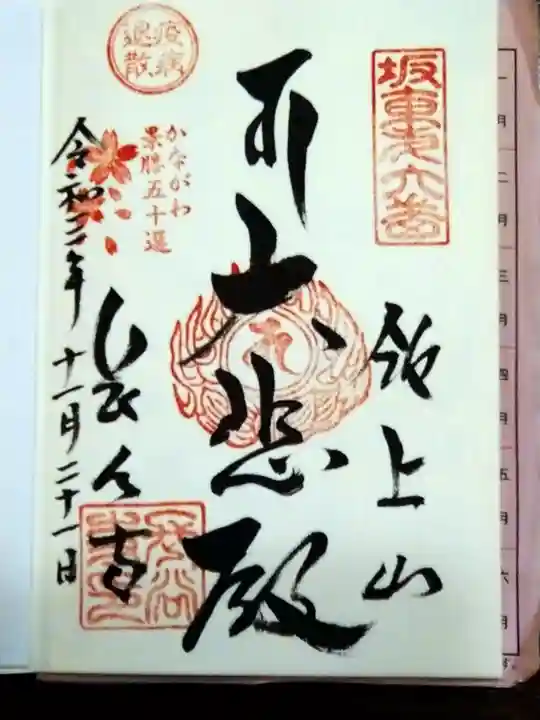 坂東第六番
飯上山
大悲殿
疫病退散
かながわ
景勝五十選
長谷寺
令和三年十一月二十一日
一月
二月
三月
四月
五月
六月